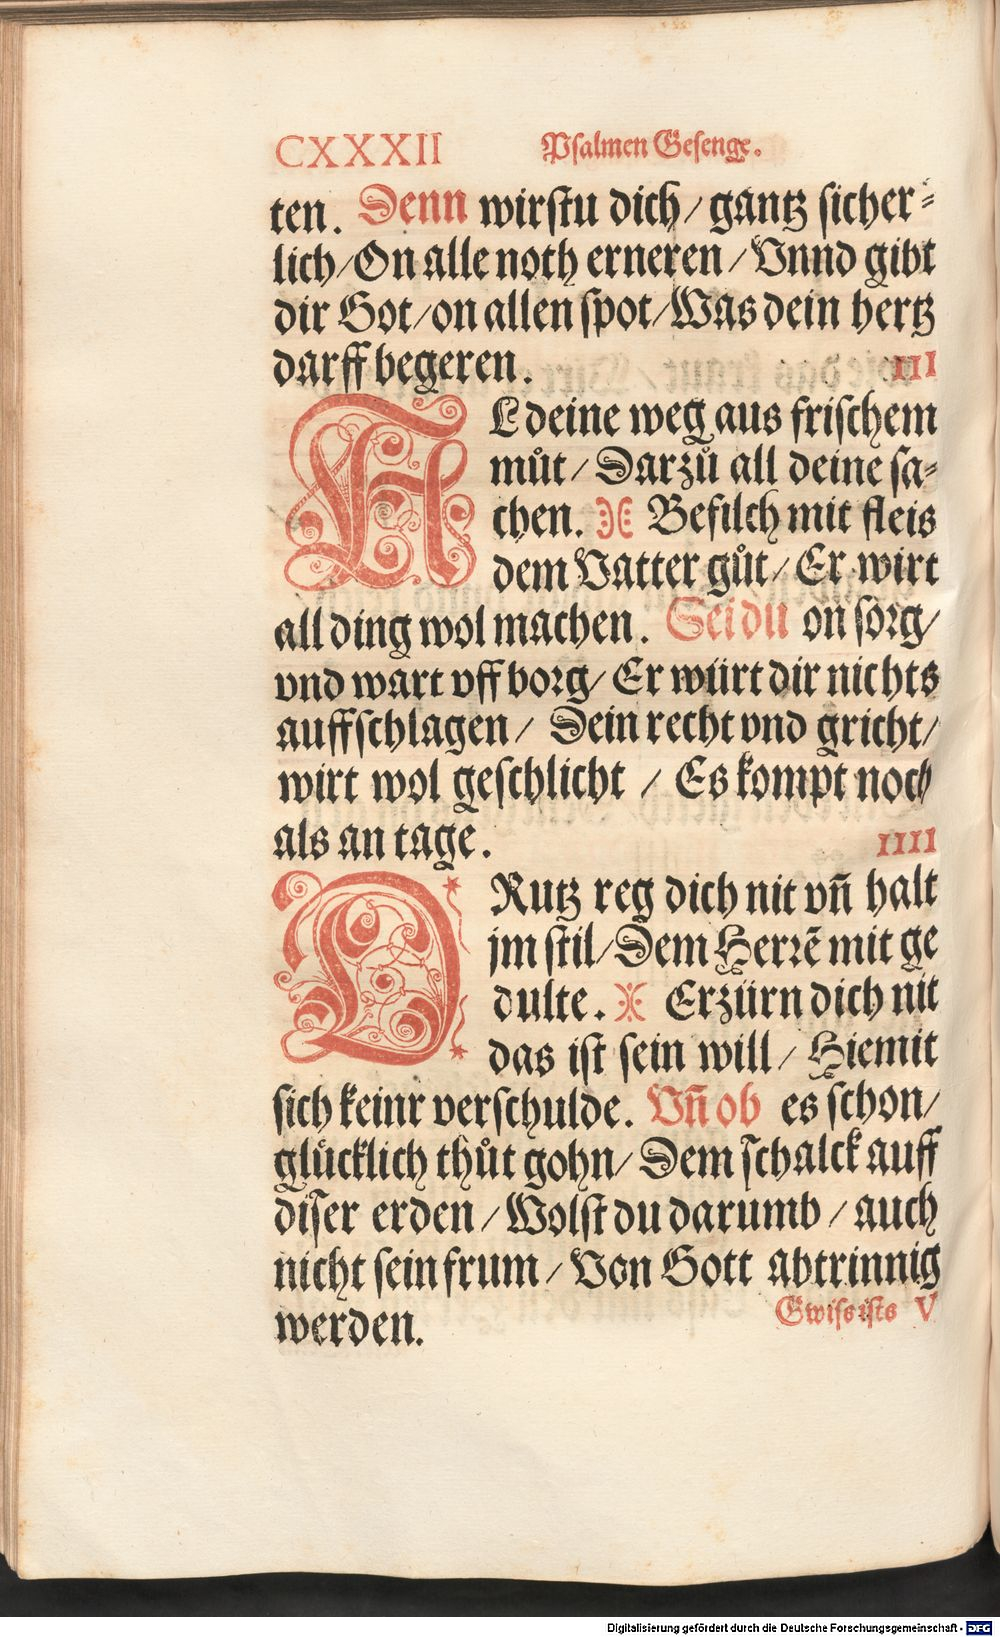 CXXXII Psalmen Gesenge.
ten. Denn wirstu dich / gantz sicher=
lich / On alle noth erneren / Vnnd gibt
dir Got / on allen spot / Was dein hertz
darff begeren. III
AL deine weg aus frischem
muͦt / Darzuͦ all deine sa=
chen. Befilch mit fleis
dem Vatter guͦt / Er wirt
all ding wol machen. Sei du on sorg /
vnd wart vff borg / Er würt dir nichts
auffschlagen / Dein recht vnd gricht /
wirt wol geschlicht / Es kompt noch
als an tage. IIII
DRutz reg dich nit vñ halt
jm stil / Dem Herrẽ mit ge
dulte. Erzürn dich nit
das ist sein will / Hiemit
sich keinr verschulde. Vñ ob es schon /
glücklich thuͦt gohn / Dem schalck auff
diser erden / Wolst du darumb / auch
nicht sein frum / Von Gott abtrinnig
werden. Gwis ists V
Digitalisierung gefördert durch die Deutsche Forschungsgemeinschaft - DFG